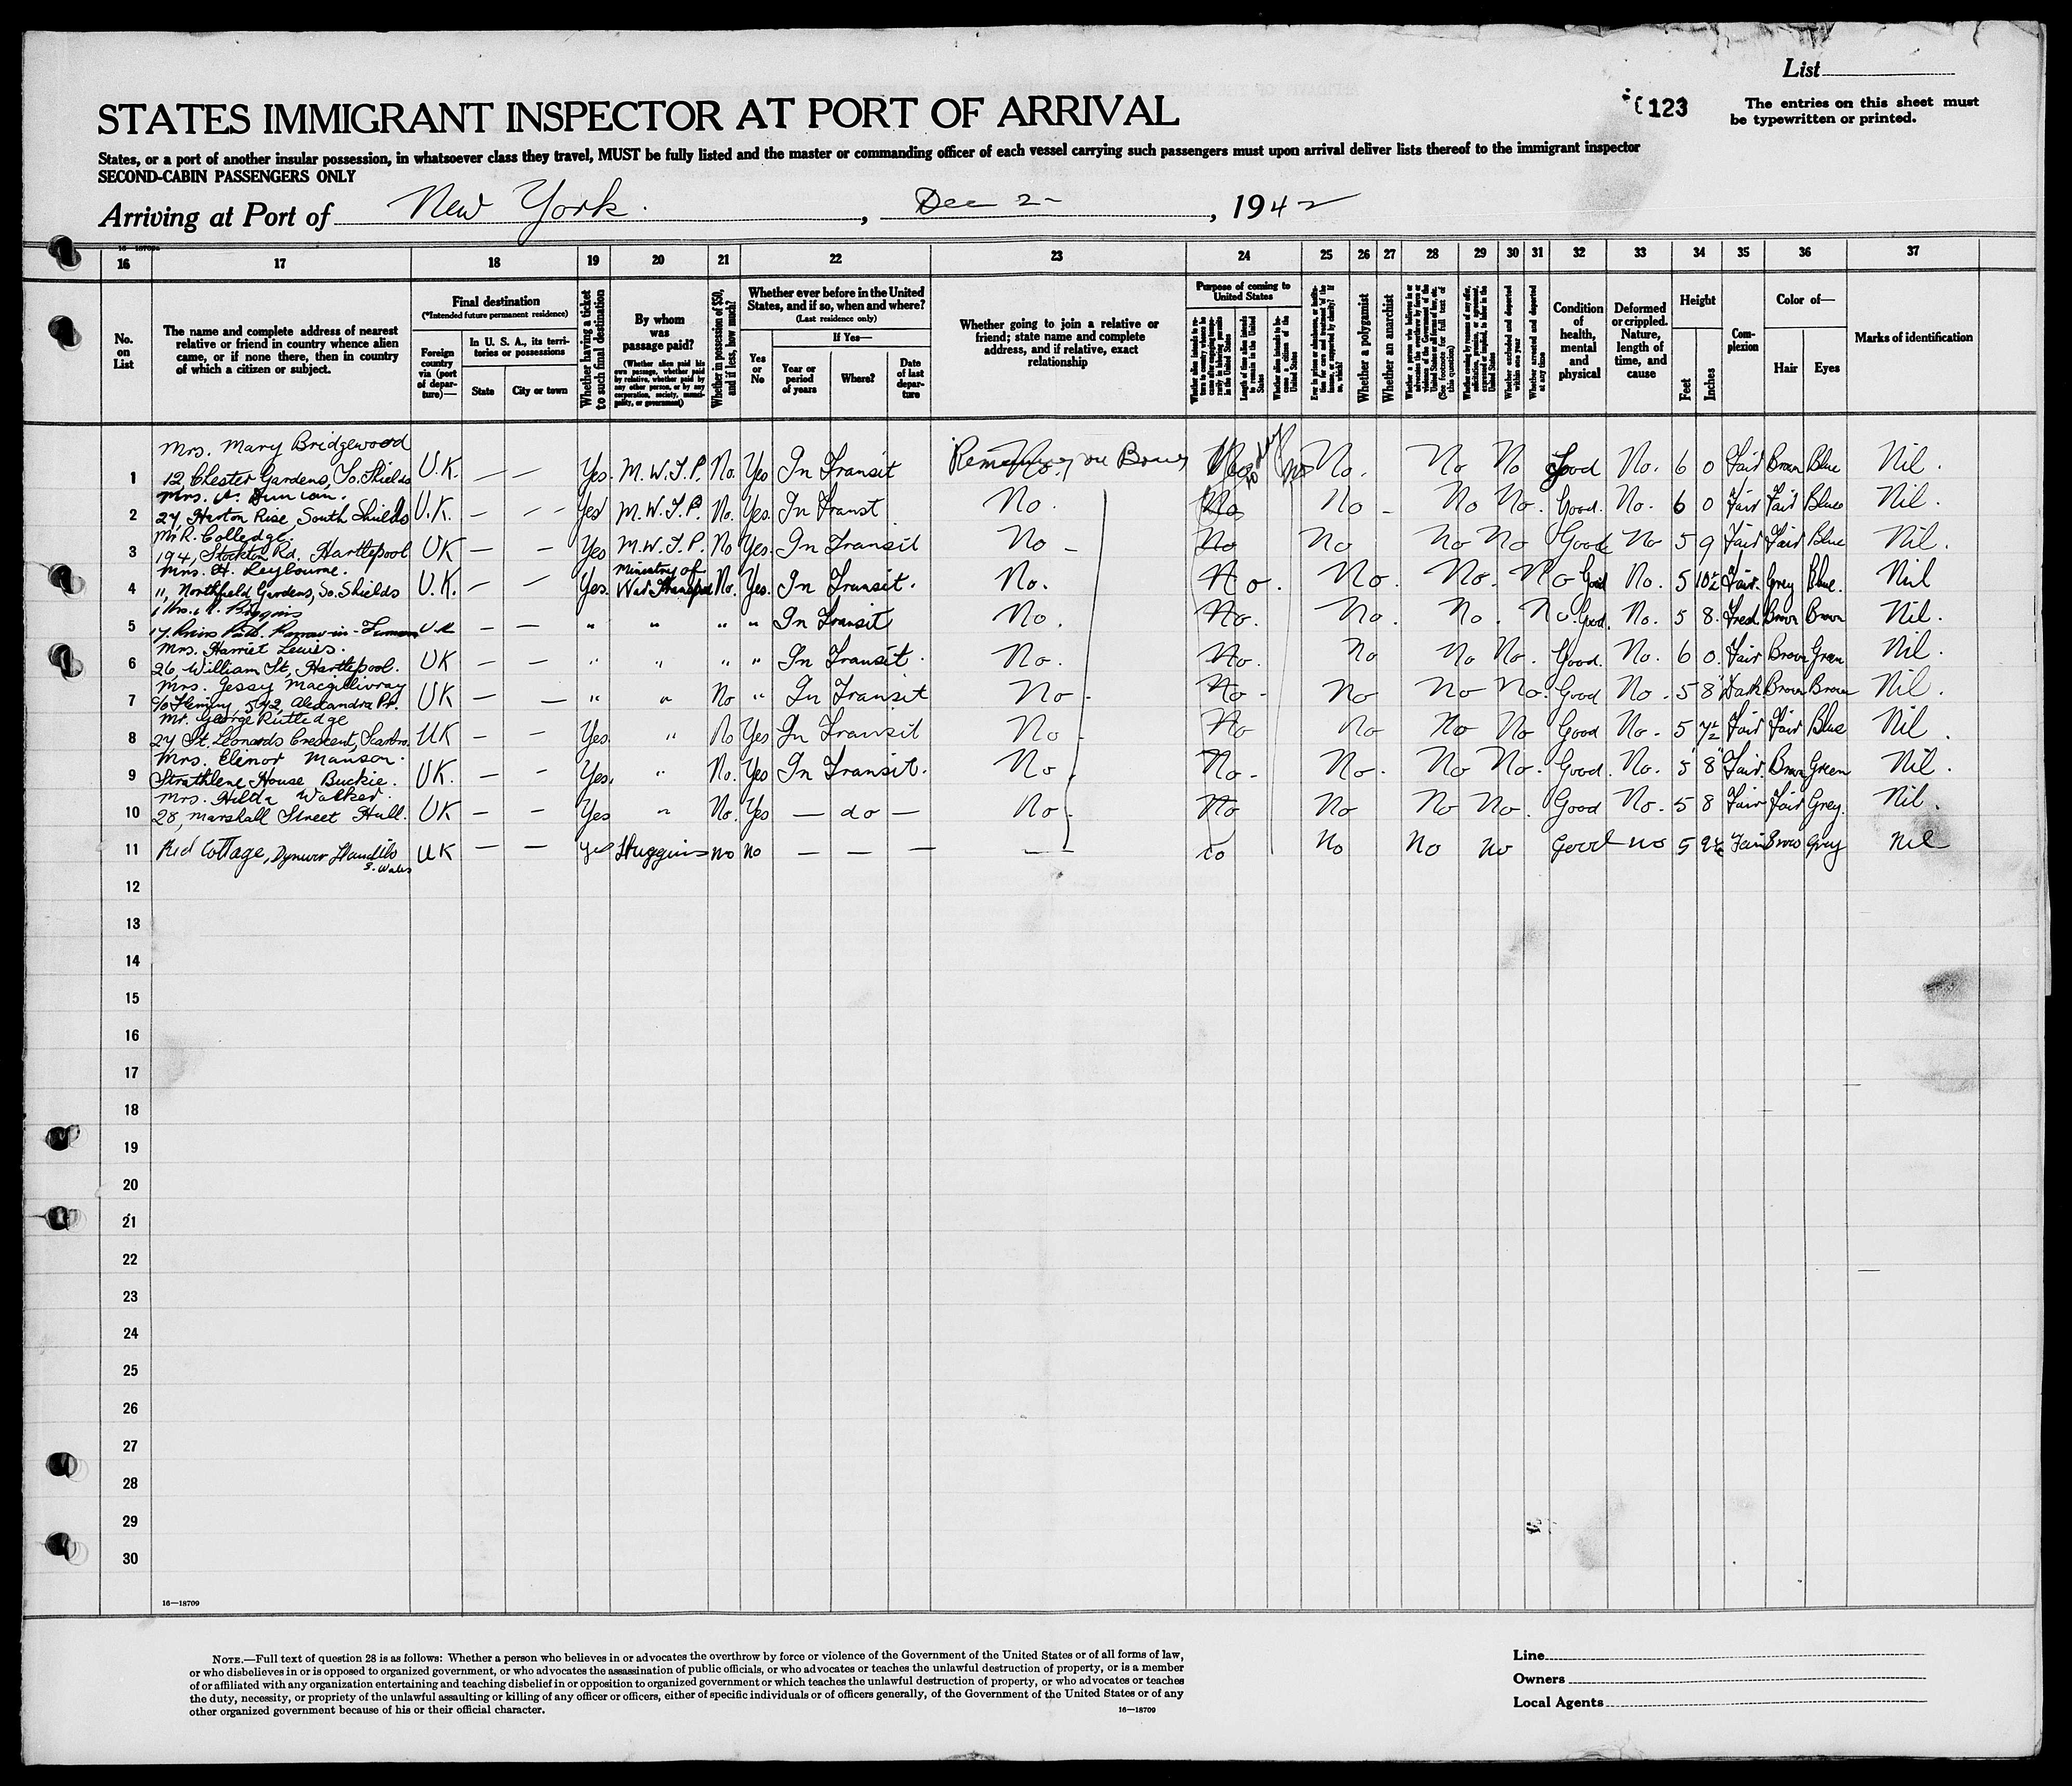 List
STATES IMMIGRANT INSPECTOR AT PORT OF ARRIVAL
123
The entries on this sheet must
be typewritten or printed.
States, or a port of another insular possession, in whatsoever class they travel, MUST be fully listed and the master or commanding officer of each vessel carrying such passengers must upon arrival deliver lists thereof to the immigrant inspector
SECOND-CABIN PASSENGERS ONLY
Arriving at Port of New York. , Dec 2- , 1942
16 17 18 19 20 21 22 23 24 25 26 27 28 29 30 31 32 33 34 35 36 37
No. on List
The name and complete address of nearest relative or friend in country whence alien came, or if none there, then in country of which a citizen or subject.
Final destination
(*Intended future permanent residence)
Foreign country via (port of departure)—
In U. S. A., its territories or possessions
State
City or town
Whether having a ticket to such final destination
By whom was passage paid?
(Whether alien paid his own passage, whether paid by relative, whether paid by any other person, or by any corporation, society, municipality, or government)
Whether in possession of $50, and if less, how much?
Whether ever before in the United States, and if so, when and where?
(Last residence only)
Yes or No
If Yes—
Year or period of years
Where?
Date of last departure
Whether going to join a relative or friend; state name and complete address, and if relative, exact relationship
Purpose of coming to United States
Length of time alien intends to remain in the United States
Whether alien intends to become a citizen of the United States
Whether a polygamist
Whether an anarchist
Whether excluded and deported within one year
Whether arrested and deported at any time
Condition of health, mental and physical
Deformed or crippled. Nature, length of time, and cause
Height
Feet
Inches
Complexion
Color of—
Hair
Eyes
Marks of identification
Mrs. Mary Bridgewood
1 12, Chester Gardens, So. Shields U.K. — — Yes. M.W.T.P. No. Yes In Transit No. No. No No Good No. 6 0 Fair Brown Blue Nil.
Mrs. A. Duncan.
2 27, Harton Rise, South Shields U.K. — — Yes M.W.T.P. No. Yes. In Transt No. No No - No No. Good. No. 6 0 Fair Fair Blue Nil.
Mr R. Colledge.
3 194, Stockton Rd. Hartlepool UK — — Yes M.W.T.P. No Yes. In Transit No - No No No No Good No 5 9 Fair Fair Blue Nil.
Mrs. H. Leybourne. Ministry of
4 11, Northfield Gardens, So. Shields U.K. — — Yes. War Transport No. Yes. In Transit. No. No. No. No. No Good No. 5 10½ Fair. Grey Blue. Nil
5 U.K — — " " " " In Transit No. No. No. No. No. Good. No. 5 8. Brown Brown Nil.
Mrs. Harriet Lewis.
6 26, William St, Hartlepool. UK — — " " " " In Transit. No. No. No No No. Good. No. 6 0. Fair Brown Green Nil.
Mrs. Jessy Macgillivray
7 c/o Fleming, 572, Alexandra Pr. UK — — " " No " In Transit No. No - No No No. Good No. 5 8 Dark Brown Brown Nil.
Mr. George Rutledge
8 27 St. Leonards Crescent, Scarbro. UK — — Yes " No Yes In Transit No. No No No No Good No. 5 7½ Fair Fair Blue Nil.
Mrs. Elinor Manson.
9 Strathlene House Buckie. UK. — — Yes. " No. Yes In Transit. No. No - No. No No. Good. No. 5 8 Fair. Brown Green Nil.
Mrs. Hilda Walker.
10 28, Marshall Street Hull. UK — — Yes " No. Yes — do — No. No No No No. Good No. 5 8 Fair Fair Grey. Nil.
11 Red Cottage, UK — — yes Huggins no no — — — — — no No No no Good no 5 Fair Brown Grey Nil
S. Wales
12
13
14
15
16
17
18
19
20
21
22
23
24
25
26
27
28
29
30
16—18709
NOTE.—Full text of question 28 is as follows: Whether a person who believes in or advocates the overthrow by force or violence of the Government of the United States or of all forms of law,
or who disbelieves in or is opposed to organized government, or who advocates the assassination of public officials, or who advocates or teaches the unlawful destruction of property, or is a member
of or affiliated with any organization entertaining and teaching disbelief in or opposition to organized government or which teaches the unlawful destruction of property, or who advocates or teaches
the duty, necessity, or propriety of the unlawful assaulting or killing of any officer or officers, either of specific individuals or of officers generally, of the Government of the United States or of any
other organized government because of his or their official character.
16—18709
Line
Owners
Local Agents